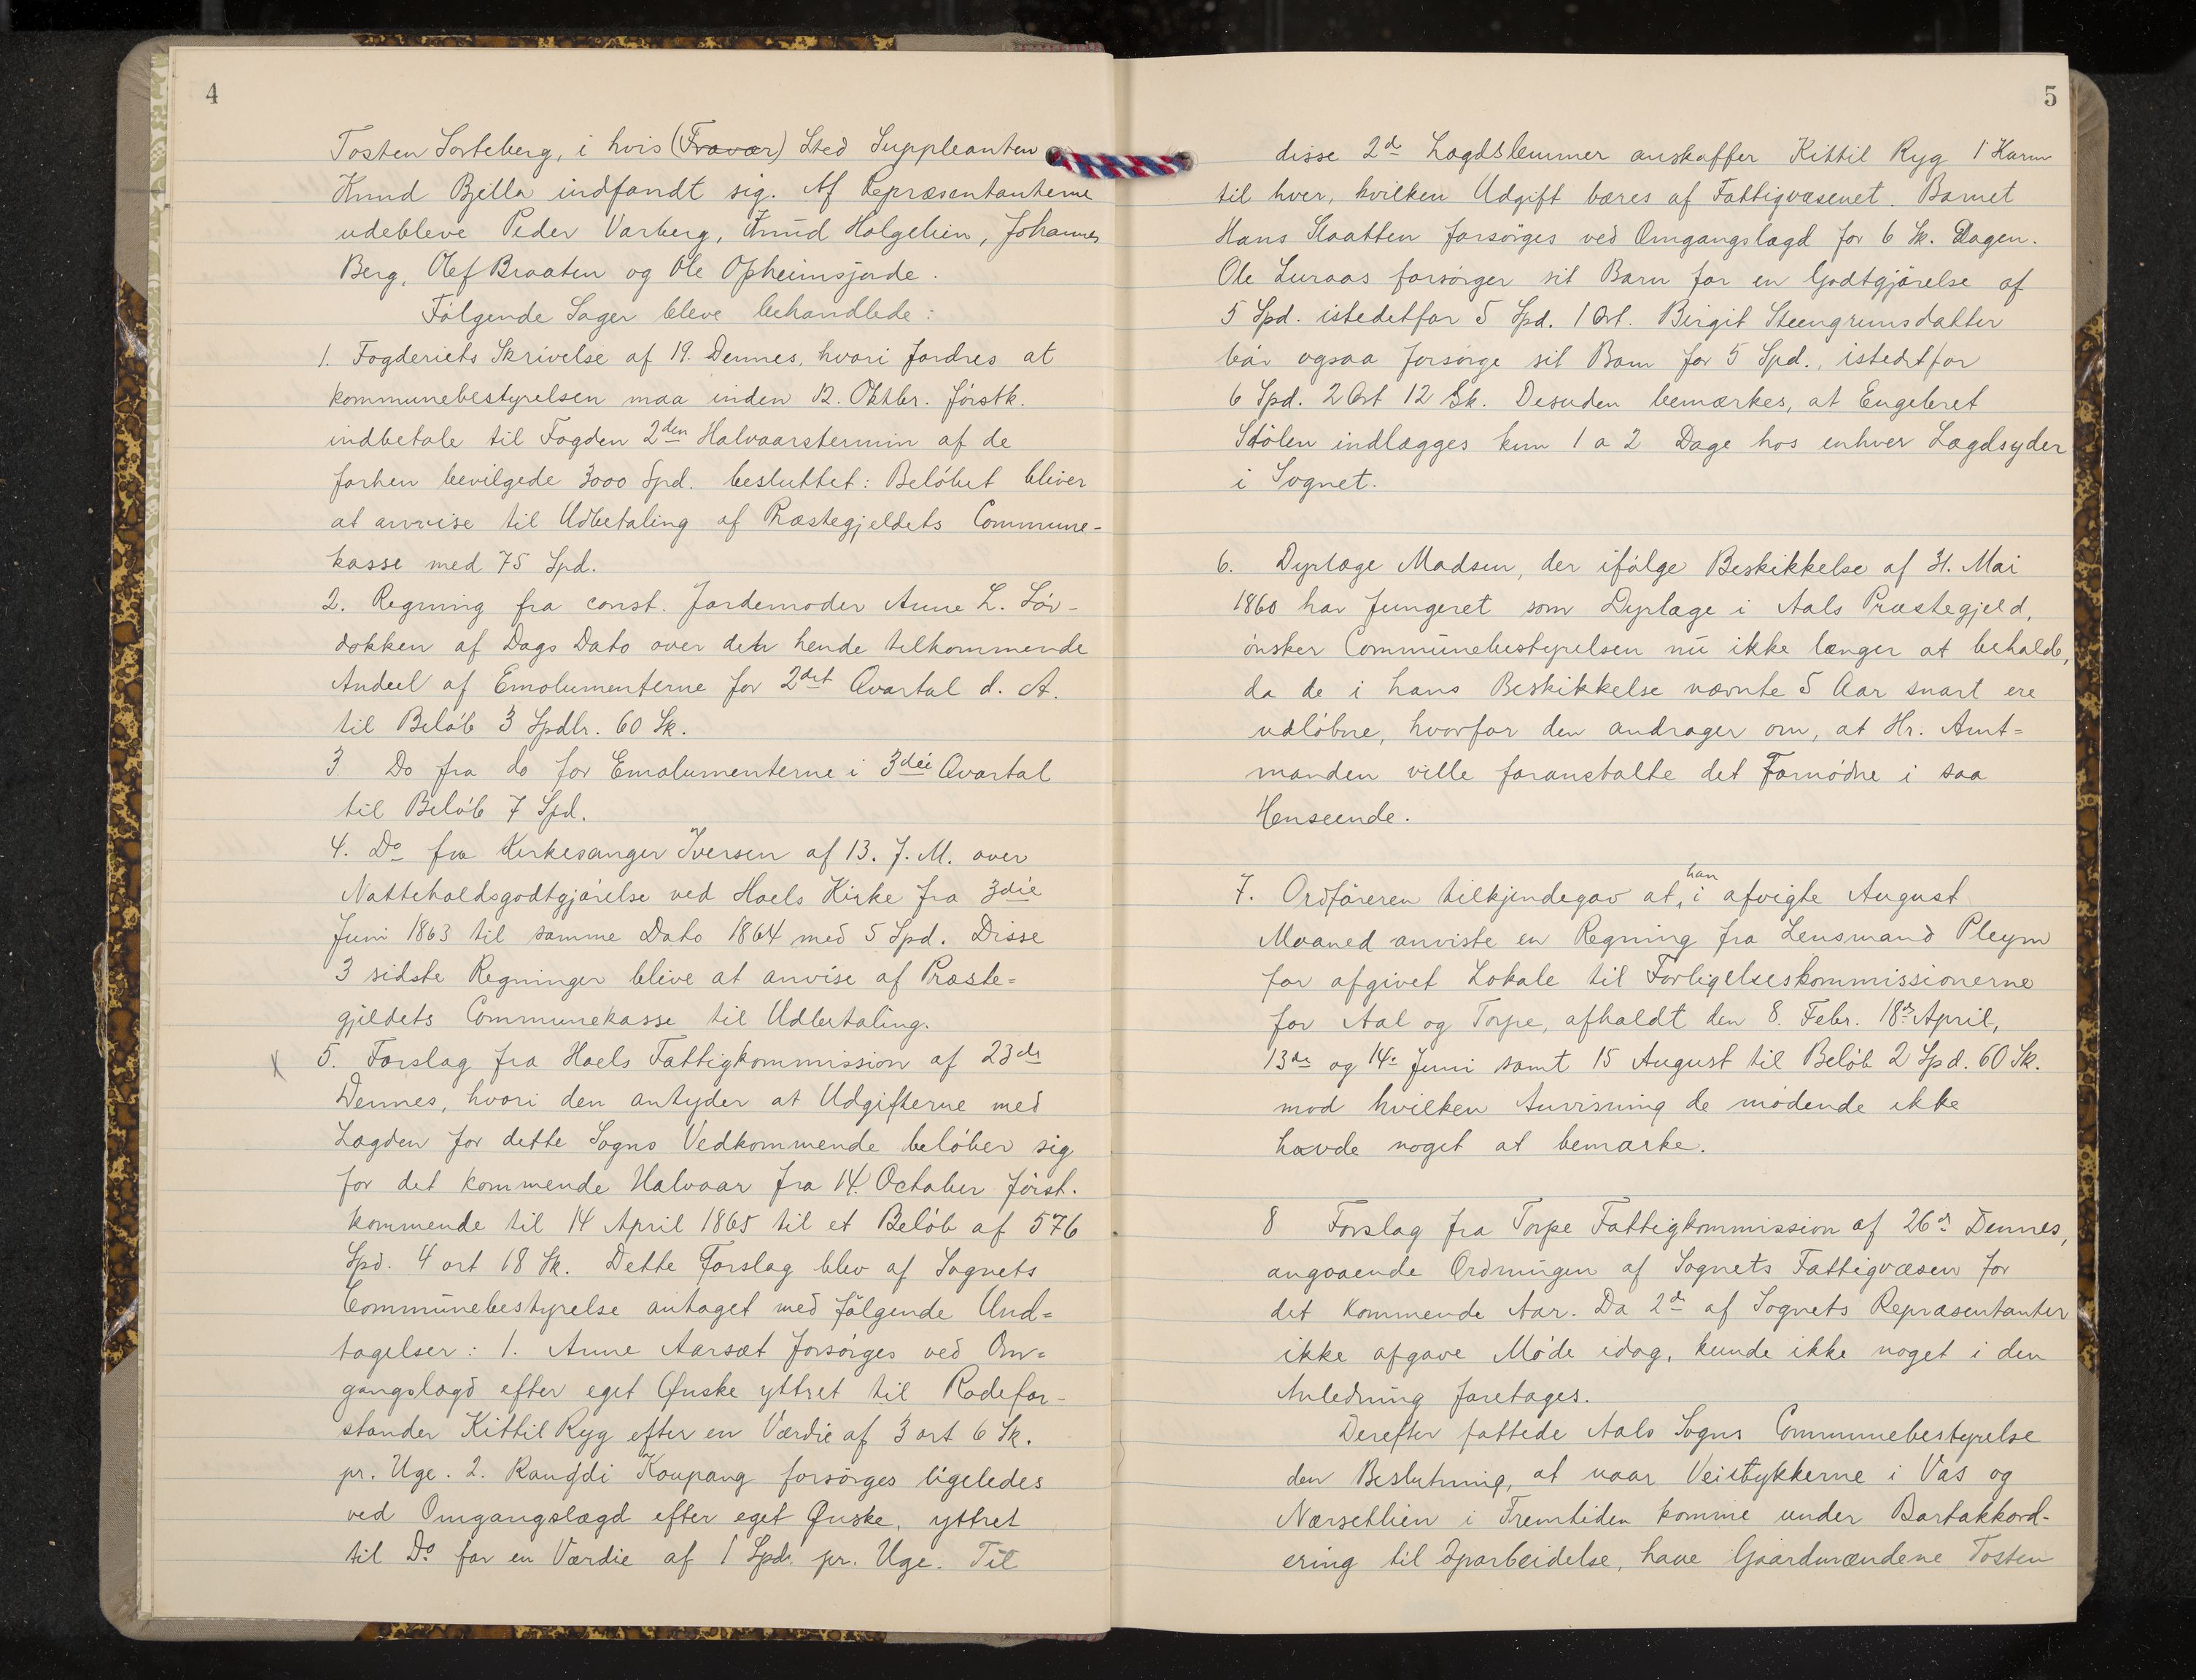 4
Tosten Sorteberg, i hvis (Fravær) Sted Suppleanten
Knud Bjella indfandt sig. Af Repræsentanterne
udebleve Peder Varberg, Knud Holgehien, Johannes
Berg, Olef Braaten og Ole Opheimsjorde.
Følgende Sager bleve behandlede:
1. Fogderiets Skrivelse af 19. Dennes, hvori fordres at
kommunebestyrelsen maa inden 12. Oktbr. førstk.
indbetale til Fogden 2den Halvaarstermin af de
forhen bevilgede 3000 Spd. besluttet: Beløbet bliver
at anvise til Udbetaling af Præstegjeldets Commune-
kasse med 75 Spd.
2. Regning fra const. Jordemoder Anne L. Løv-
dokken af Dags Dato over den hende tilkommende
Andeel af Emolumenterne for 2det Qvartal d. A.
til Beløb 3 Spdlr. 60 Sk.
3 Do fra do for Emolumenterne i 3die Qvartal
til Beløb 7 Spd.
4. Do fra Kirkesanger Iversen af 13. J. M. over
Natteholdsgodtgjørelse ved Hoels Kirke fra 3die
Juni 1863 til samme Dato 1864 med 5 Spd. Disse
3 sidste Regninger blive at anvise af Præste=
gjeldets Communekasse til Udbetaling.
X 5. Forslag fra Hoels Fattigkommission af 23de
Dennes, hvori den antyder at Udgifterne med
Lægden for dette Sogns Vedkommende beløber sig
for det kommende Halvaar fra 14. October først.
kommende til 14 April 1865 til et Beløb af 576
Spd. 4 ort 18 Sk. Dette Forslag blev af Sognets
Communebestyrelse antaget med følgende Und=
tagelser: 1. Anne Aarsæt forsørges ved Om=
gangslægd efter eget Ønske yttret til Rodefor-
stander Kittil Ryg efter en Værdie af 3 ort 6 Sk.
pr. Uge. 2. Rangdi Koupang forsørges ligeledes
ved Omgangslægd efter eget Ønske, yttret
til Do for en Værdie af 1 Spd. pr. Uge. Til
5
disse 2de Lægdslemmer anskaffer Kittil Ryg 1 Karm
til hver, hvilken Udgift bæres af Fattigvæsenet. Barnet
Hans Slaatten forsørges ved Omgangslægd for 6 Sk. Dagen.
Ole Luraas forsørger sit Barn for en Godtgjørelse af
5 Spd. istedetfor 5 Spd. 1 Ort. Birgit Steengrimsdatter
bør ogsaa forsørge sit Barn for 5 Spd., istedetfor
6 Spd. 2 Ort 12 Sk. Desuden bemærkes, at Engebret
Stølen indlægges kun 1 a 2 Dage hos enhver Lægdsyder
i Sognet.
6. Dyrlæge Madsen, der ifølge Beskikkelse af 31. Mai
1860 har fungeret som Dyrlæge i Aals Præstegjeld,
ønsker Communebestyrelsen nu ikke længer at beholde,
da de i hans Beskikkelse nævnte 5 Aar snart ere
udløbne, hvorfor den andrager om, at Hr. Amt=
manden ville foranstalte det Fornødne i saa
Henseende.
7. Ordføreren tilkjendegav at, han i afvigte August
Maaned anviste en Regning fra Lensmand Pleym
for afgivet Lokale til Forligelseskommissionerne
for Aal og Torpe, afholdt den 8. Febr. 18de April,
13de og 14e Juni samt 15 August til Beløb 2 Spd. 60 Sk.
mod hvilken Anvisning de mødende ikke
havde noget at bemærke.
8 Forslag fra Torpe Fattigkommission af 26de Dennes,
angaaende Ordningen af Sognets Fattigvæsen for
det kommende Aar. Da 2de af Sognets Repræsentanter
ikke afgave Møde idag, kunde ikke noget i den
Anledning foretages.
Derefter fattede Aals Sogns Communebestyrelse
den Beslutning, at naar Veistykkerne i Vas og
Nærsetlien i Fremtiden komme under Bortakkord-
ering til Oparbeidelse, have Gaardmændene Tosten